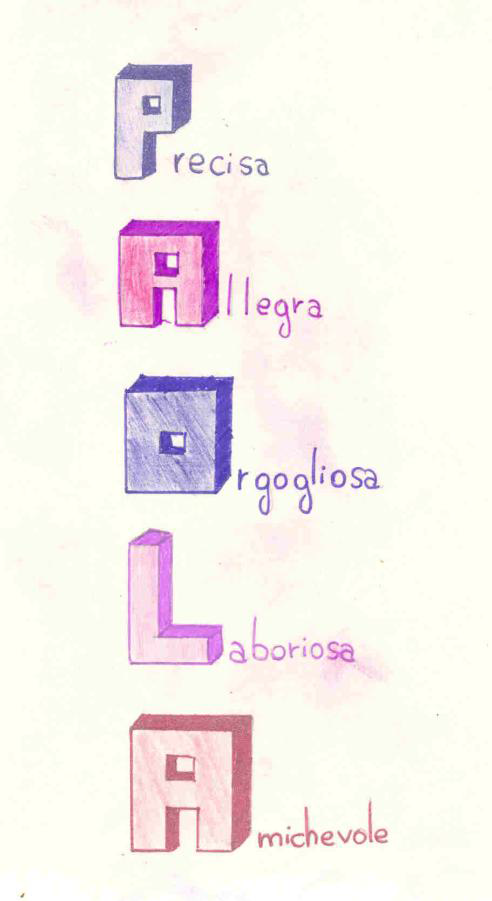 Precisa
Allegra
Orgogliosa
Laboriosa
Amichevole